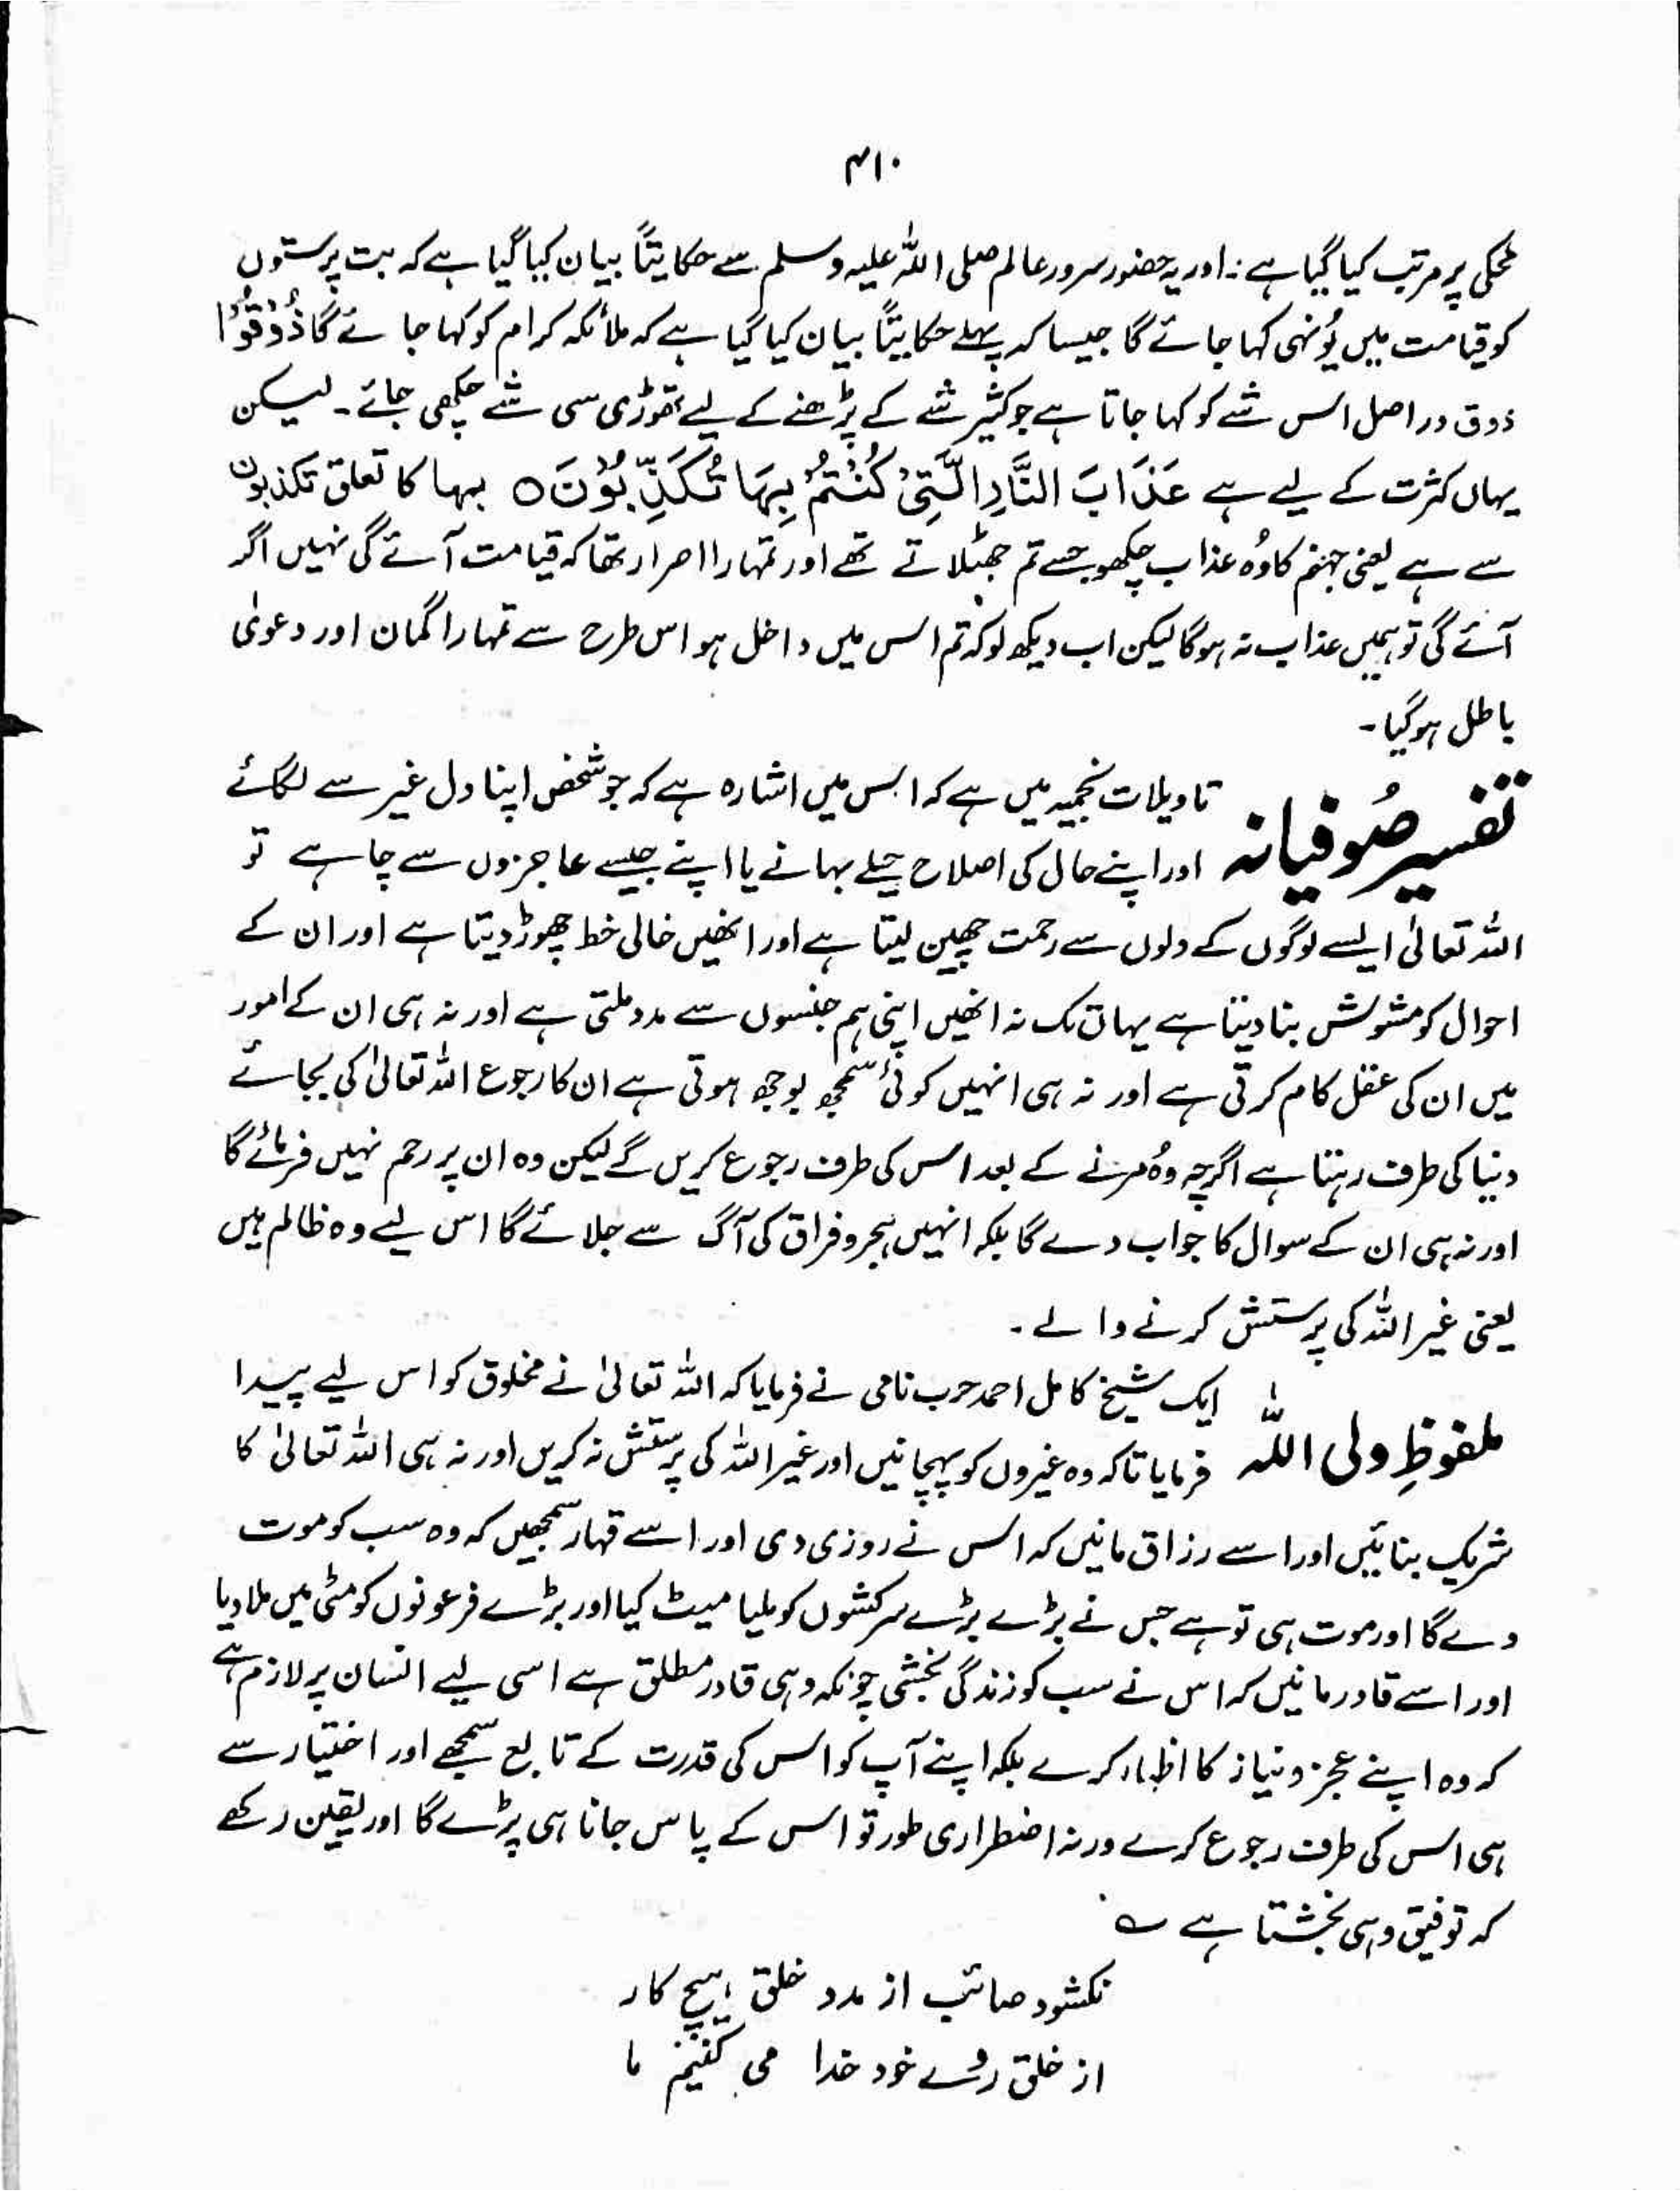 ۴۱۰
محکی پر مرتب کیا گیا ہے: اور یہ حضور سرور عالم صلی اللہ علیہ وسلم سے حکایتاً بیان کیا گیا ہے کہ بت پرستوں
کو قیامت میں یُونہی کہا جائے گا جیسا کہ پہلے حکایتاً بیان کیا گیا ہے کہ ملائکہ کرام کو کہا جائے گا ذُوْقُوْا
ذوق در اصل اس شے کو کہا جاتا ہے جو کثیر شے کے پڑھنے کے لیے تھوڑی سی شے چکھی جائے۔ لیکن
یہاں کثرت کے لیے ہے عَذَابَ النَّارِ الَّتِیْ کُنْتُمْ بِهَا تُکَذِّبُوْنَ ○ بہا کا تعلق تکذبون
سے ہے یعنی جہنم کا وُہ عذاب چکھو جسے تم جھٹلاتے تھے اور تمہارا اصرار تھا کہ قیامت آئے گی نہیں اگر
آئے گی تو ہمیں عذاب نہ ہوگا لیکن اب دیکھ لو کہ تم اس میں داخل ہو اس طرح سے تمہارا گمان اور دعویٰ
باطل ہوگیا۔
تفسیر صُوفیانہ تاویلات نجمیہ میں ہے کہ اس میں اشارہ ہے کہ جو شخص اپنا دل غیر سے لگائے
اور اپنے حال کی اصلاح حیلے بہانے یا اپنے جیسے عاجزوں سے چاہے تو
اللہ تعالیٰ ایسے لوگوں کے دلوں سے رحمت چھین لیتا ہے اور انھیں خالی خط چھوڑ دیتا ہے اور ان کے
احوال کو مشوش بنا دیتا ہے یہاں تک نہ انھیں اپنی ہم جنسوں سے مدد ملتی ہے اور نہ ہی ان کے امور
میں ان کی عقل کام کرتی ہے اور نہ ہی انہیں کوئی سمجھ بوجھ ہوتی ہے ان کا رجوع اللہ تعالیٰ کی بجائے
دنیا کی طرف رہتا ہے اگرچہ وُہ مرنے کے بعد اس کی طرف رجوع کریں گے لیکن وہ ان پر رحم نہیں فرمائے گا
اور نہ ہی ان کے سوال کا جواب دے گا بلکہ انہیں ہجر و فراق کی آگ سے جلائے گا اس لیے وہ ظالم ہیں
یعنی غیر اللہ کی پرستش کرنے والے۔
ملفوظِ ولی اللہ ایک شیخ کامل احمد حرب نامی نے فرمایا کہ اللہ تعالیٰ نے مخلوق کو اس لیے پیدا
فرمایا تاکہ وہ غیروں کو پہچانیں اور غیر اللہ کی پرستش نہ کریں اور نہ ہی اللہ تعالیٰ کا
شریک بنائیں اور اسے رزاق مانیں کہ اس نے روزی دی اور اسے قہار سمجھیں کہ وہ سب کو موت
دے گا اور موت ہی تو ہے جس نے بڑے بڑے سرکشوں کو ملیا میٹ کیا اور بڑے فرعونوں کو مٹی میں ملا دیا
اور اسے قادر مانیں کہ اس نے سب کو زندگی بخشی چونکہ وہی قادر مطلق ہے اسی لیے انسان پر لازم ہے
کہ وہ اپنے عجز و نیاز کا اظہار کرے بلکہ اپنے آپ کو اس کی قدرت کے تابع سمجھے اور اختیار سے
ہی اس کی طرف رجوع کرے ورنہ اضطراری طور تو اس کے پاس جانا ہی پڑے گا اور یقین رکھے
کہ توفیق وہی بخشتا ہے ؎
نکشود صائب از مدد خلق ہیچ کار
از خلق روئے خود خدا می کنیم ما